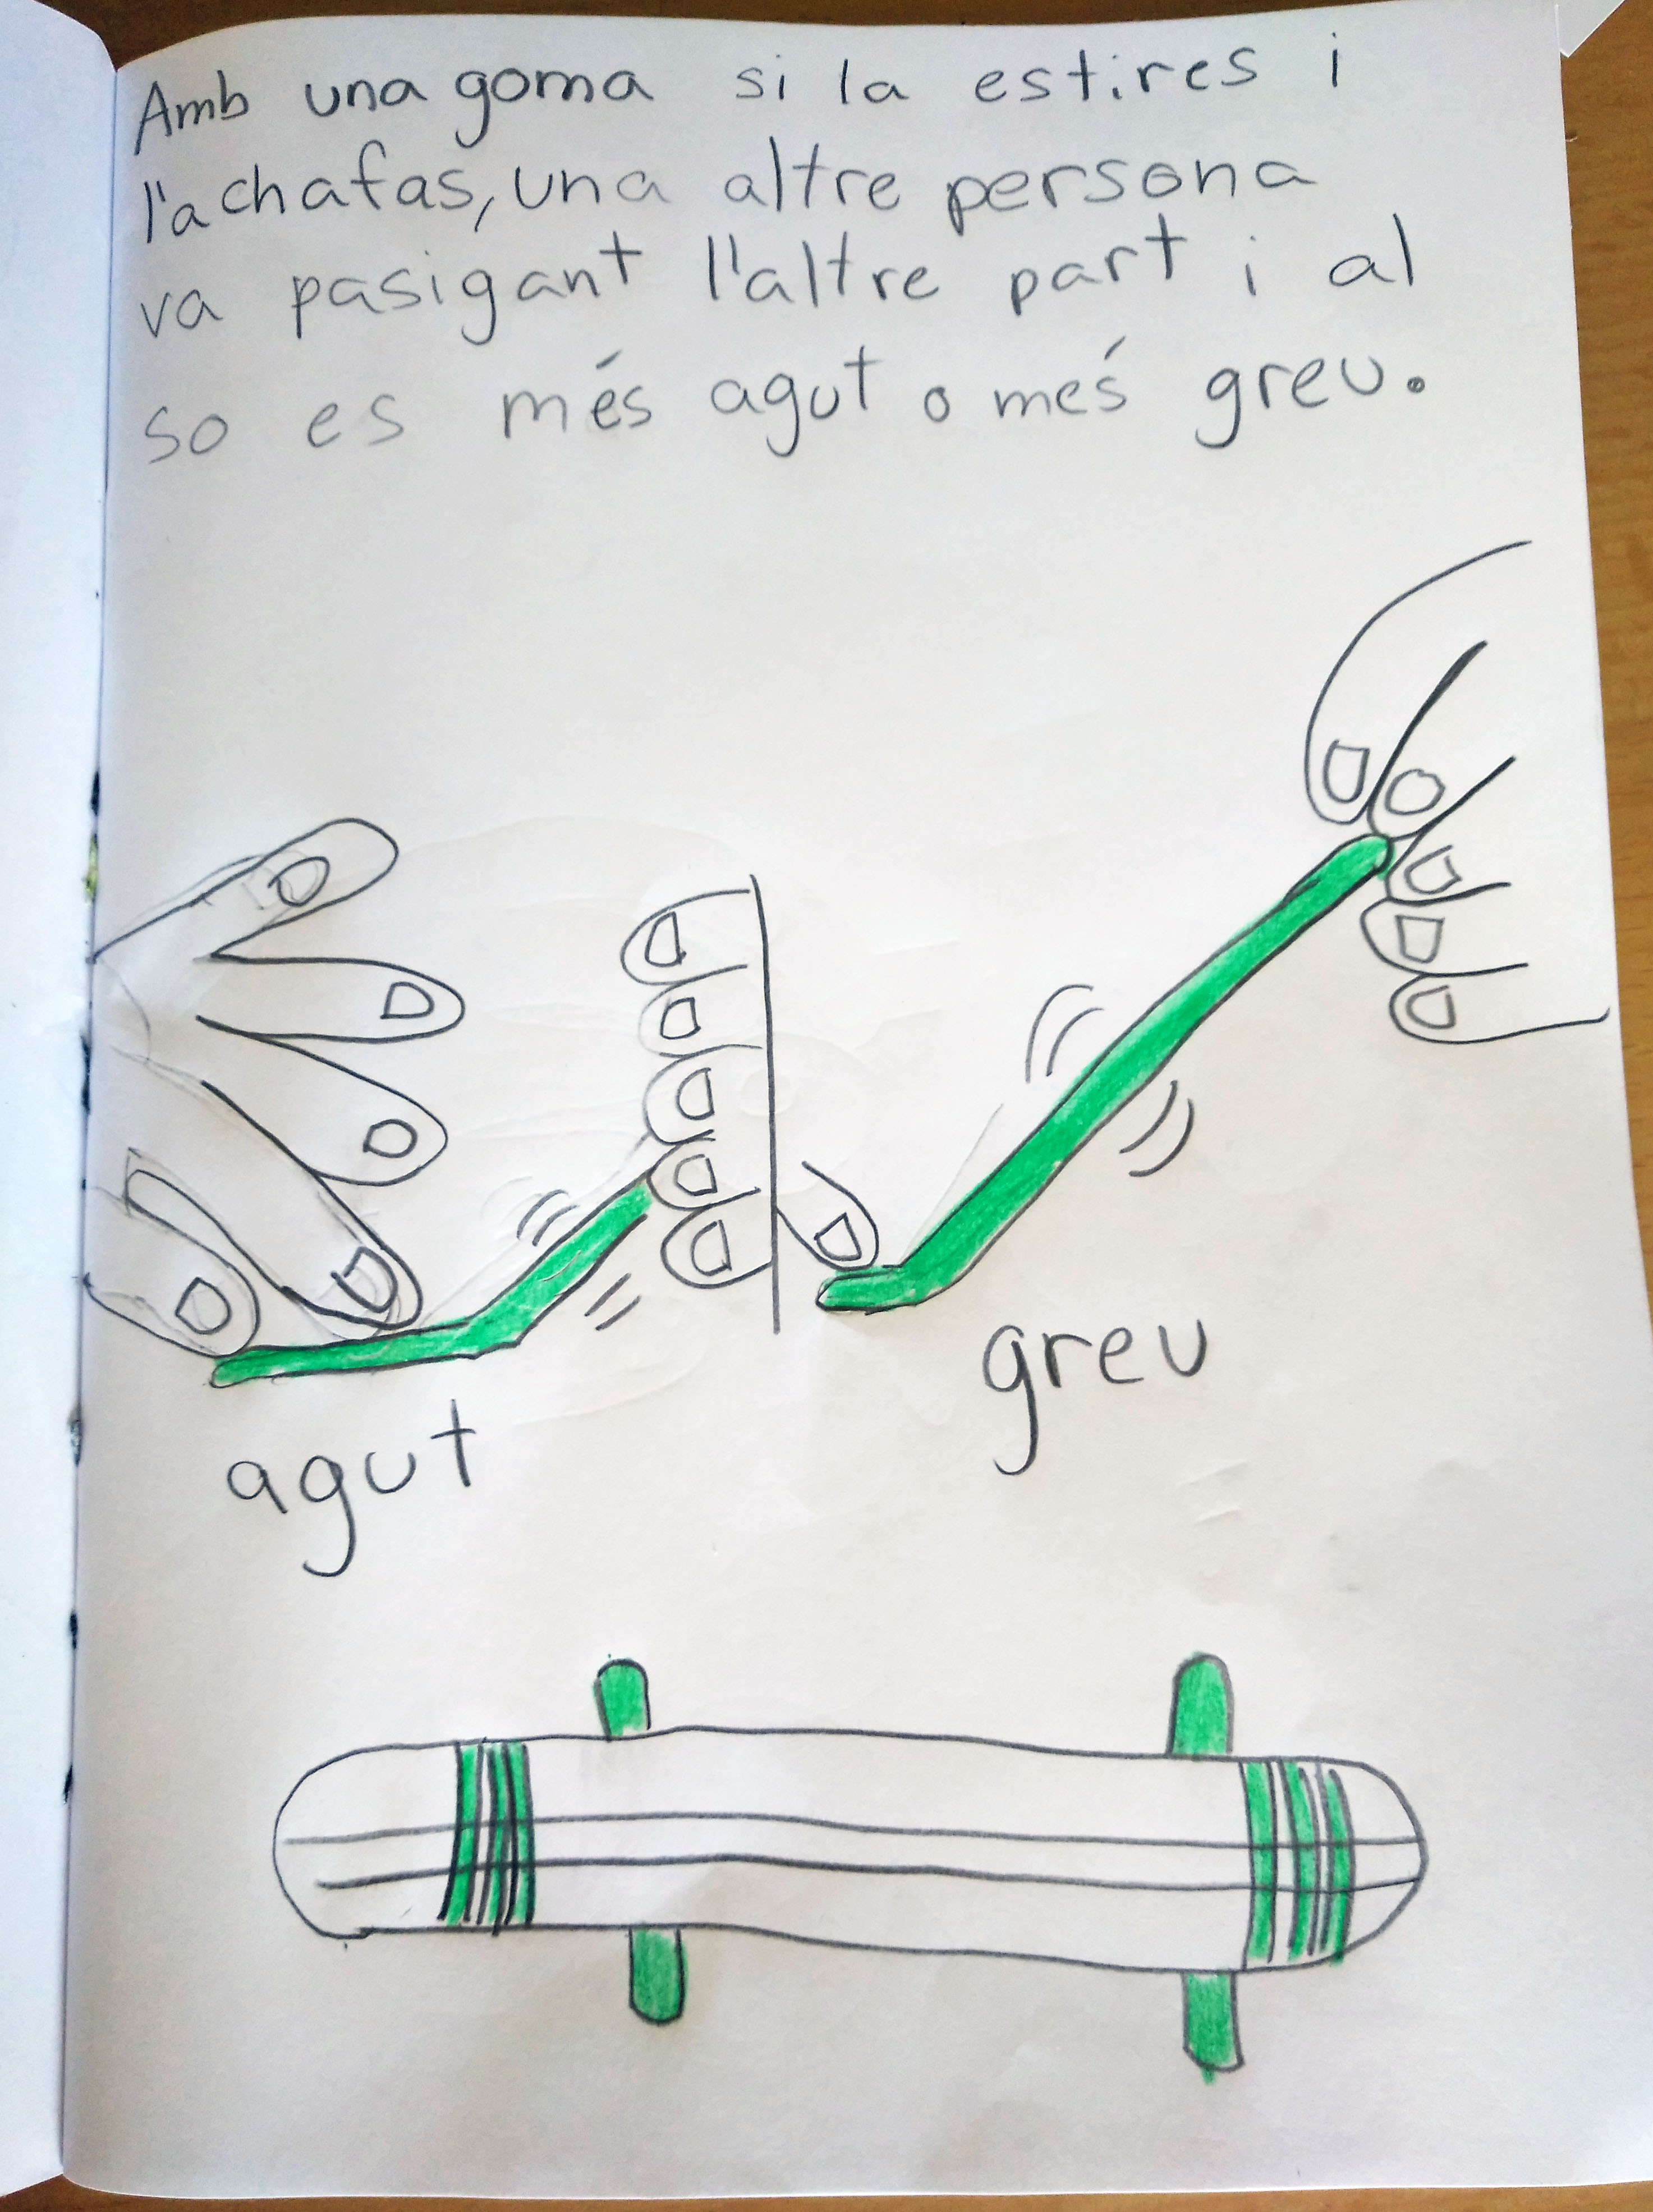 Amb una goma si la estires i
l'achafas, una altre persona
va pasigant l'altre part i al
so es més agut o més greu.
agut
greu